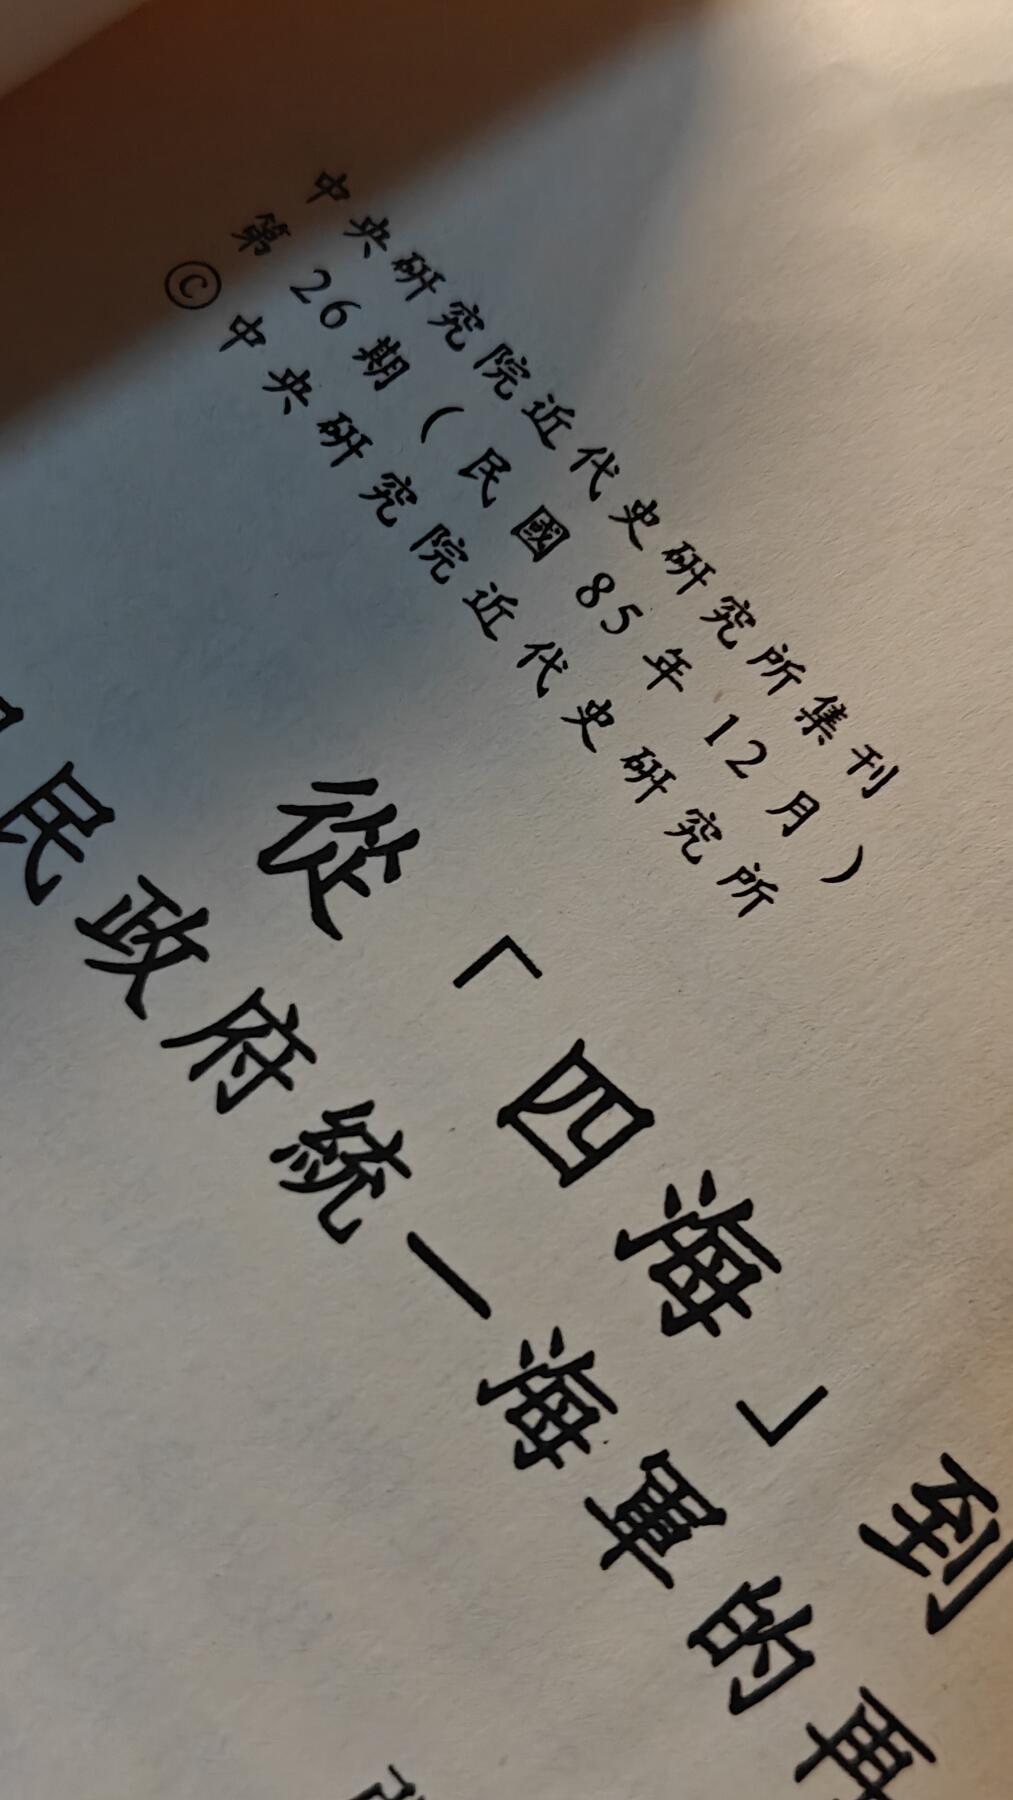 中央研究院近代史研究所集刊
第26期(民國85年12月)
©中央研究院近代史研究所
從「四海」到
民政府統一海軍的再